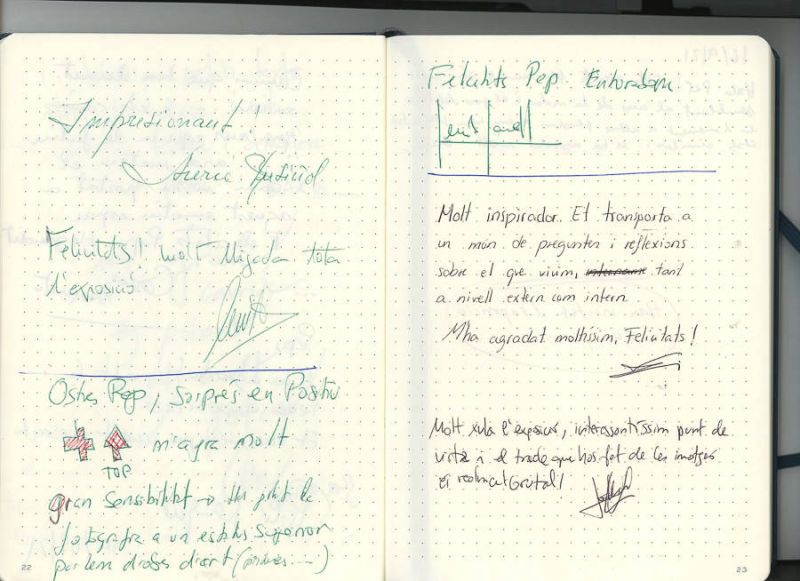 Impresionant!
Felicitats! molt lligada tota
l'exposició
Ostres Pep, sorprés en Positiu
m'agra molt
TOP
gran sensibilitat → the
fotografia a un estatus superior
parlem d'obres d'art
22
Felicitats Pep. Enhorabona
Molt inspirador. Et transporta a
un mún de preguntes i reflexions
sobre el que vivim, tant
a nivell extern com intern.
M'ha agradat moltíssim, Felicitats!
Molt xula l'exposició, interessantíssim punt de
vista i el que has fet de les imatges
és realment brutal!
23